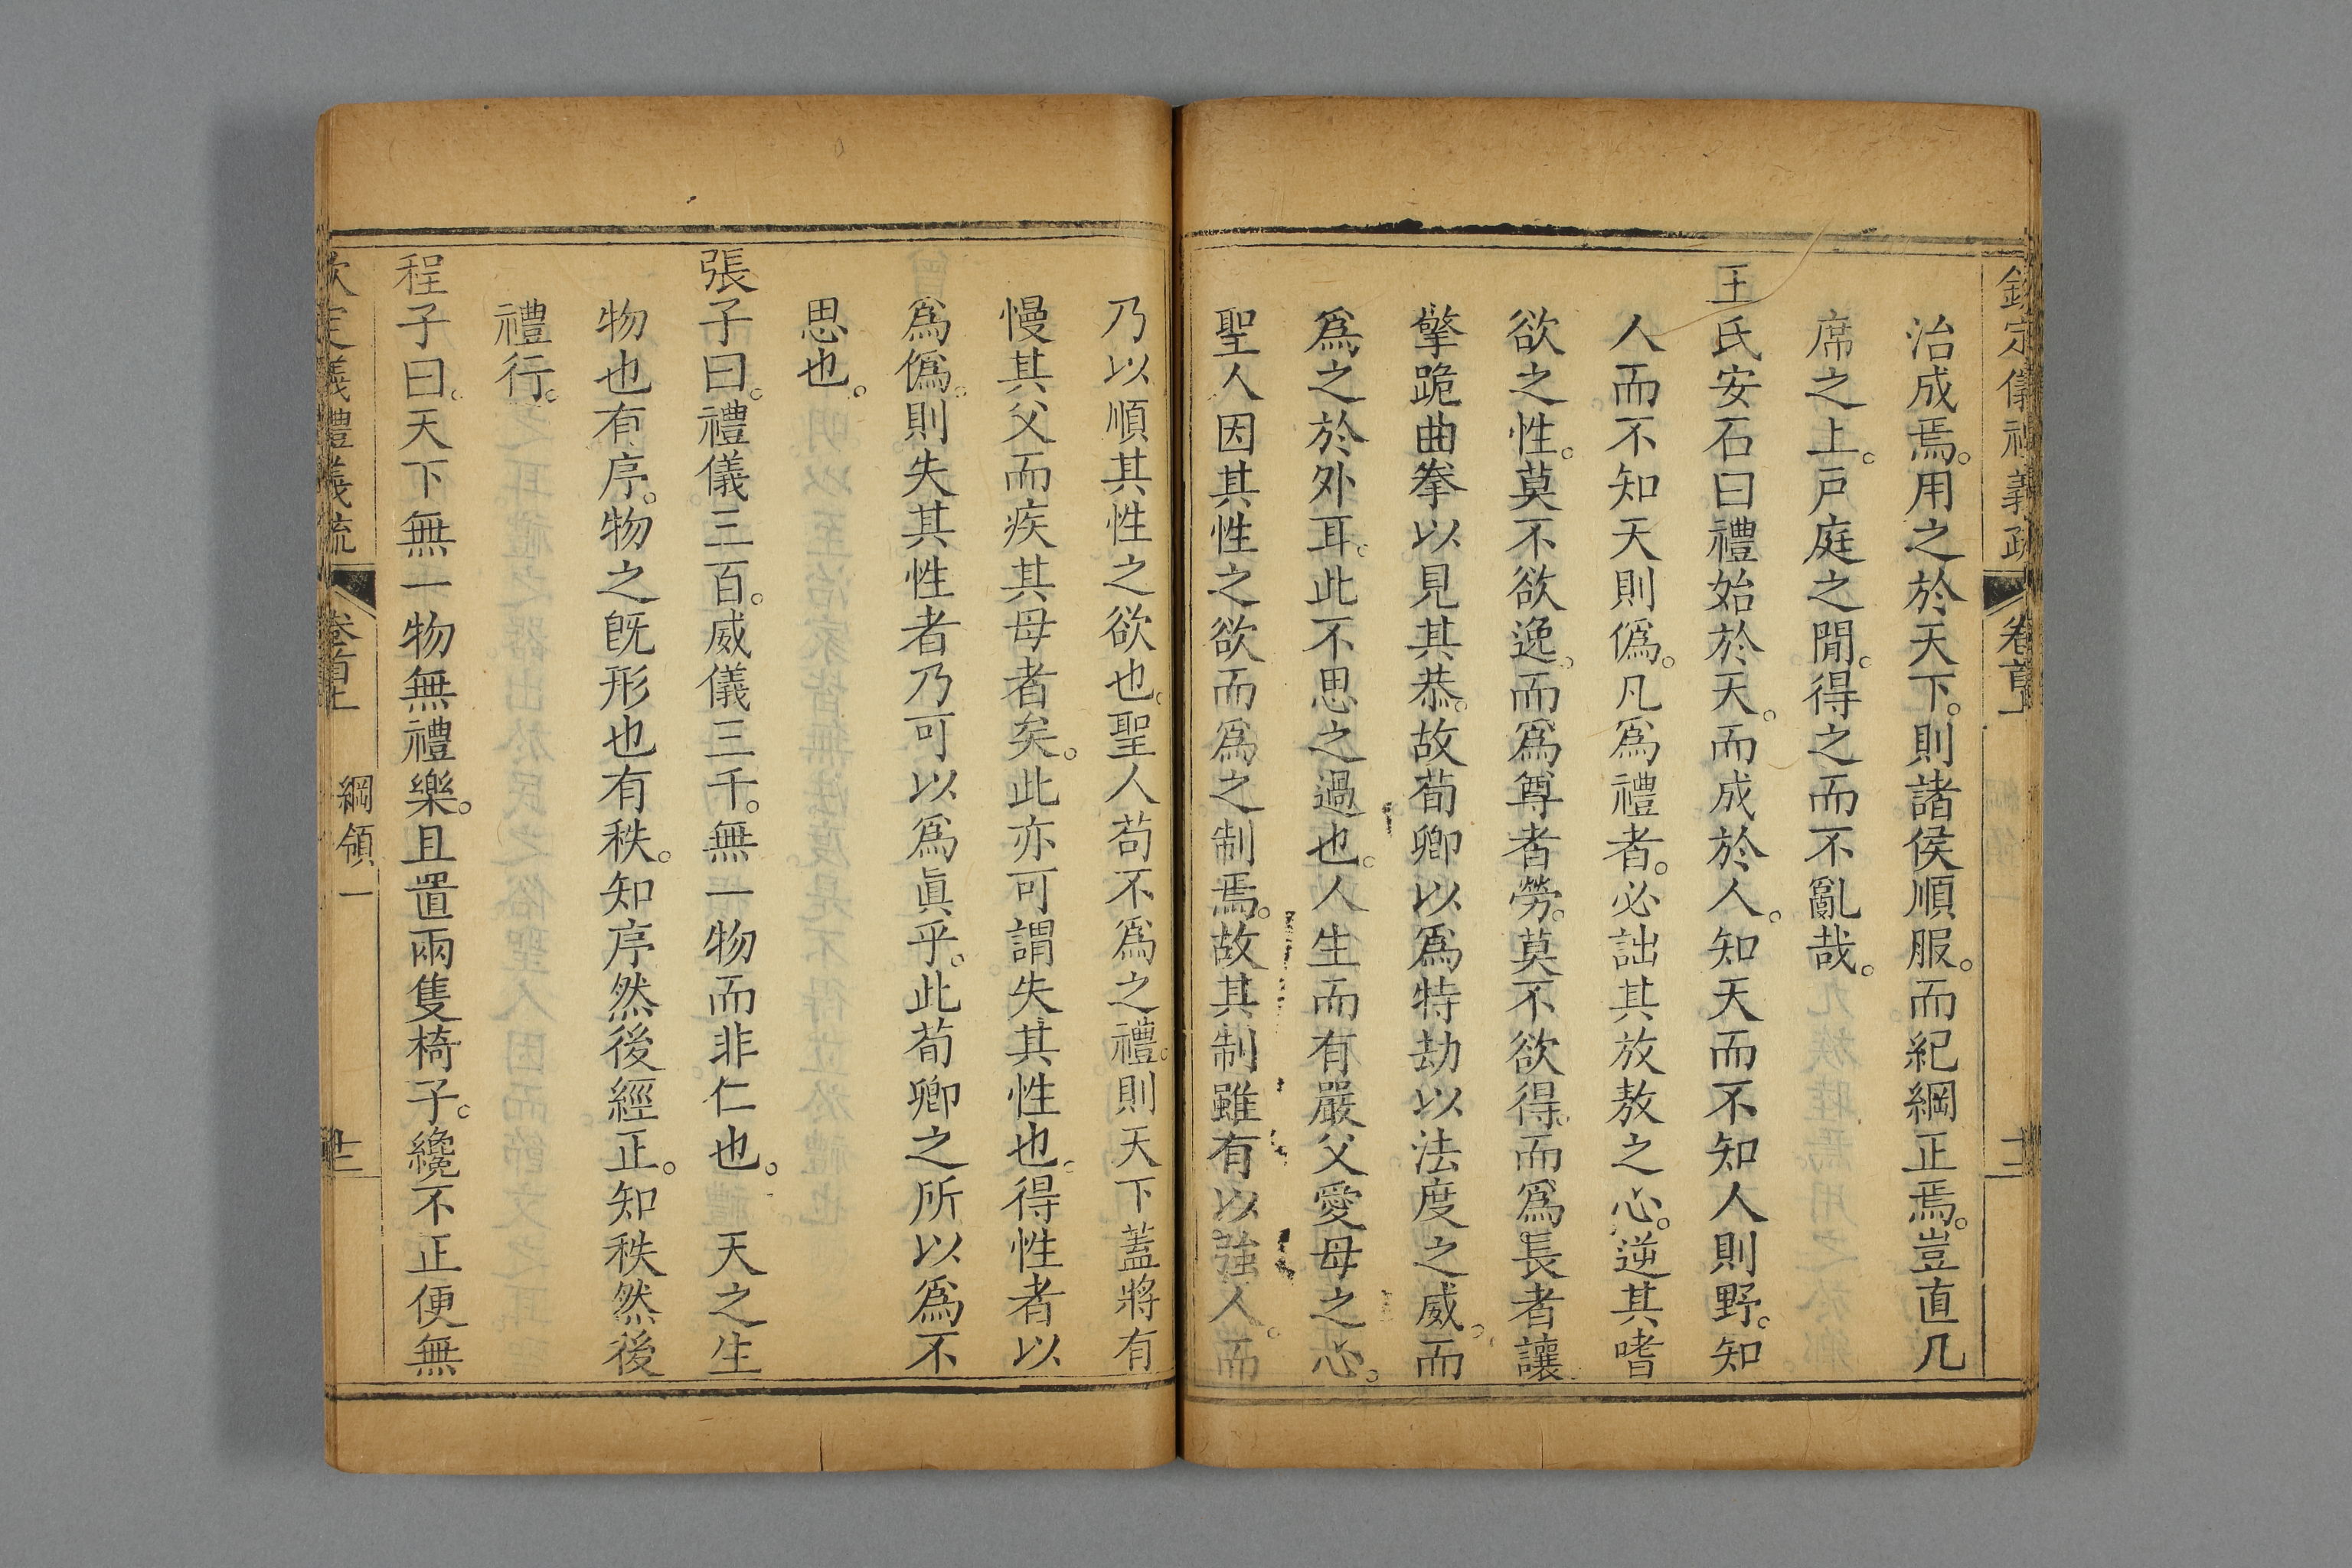 欽定儀禮義疏 卷首上 十二
治成焉。用之於天下。則諸侯順服。而紀綱正焉。豈直几
席之上。戸庭之閒。得之而不亂哉。
王氏安石曰禮始於天。而成於人。知天而不知人則野。知
人而不知天則僞。凡爲禮者。必詘其放敖之心。逆其嗜
欲之性。莫不欲逸。而爲尊者勞。莫不欲得。而爲長者讓
擎跪曲拳以見其恭。故荀卿以爲特劫以法度之威。而
爲之於外耳。此不思之過也。人生而有嚴父愛母之心。
聖人因其性之欲而爲之制焉。故其制雖有以強人。而
乃以順其性之欲也。聖人苟不爲之禮。則天下蓋將有
慢其父而疾其母者矣。此亦可謂失其性也。得性者以
爲僞。則失其性者乃可以爲眞乎。此荀卿之所以爲不
思也。
張子曰。禮儀三百。威儀三千。無一物而非仁也。 天之生
物也有序。物之旣形也有秩。知序然後經正。知秩然後
禮行。
程子曰。天下無一物無禮樂。且置兩隻椅子。纔不正便無
欽定儀禮義疏 卷首上 綱領一